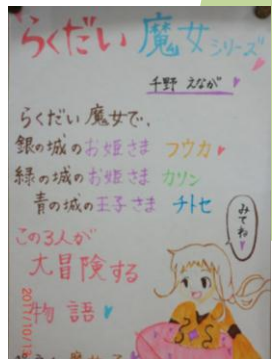 らくだい魔女シリーズ
千野 えなが
らくだい魔女で、
銀の城のお姫さま フウカ
緑の城のお姫さま カリン
青の城の王子さま チトセ
この3人が
大冒険する
物語
みてね